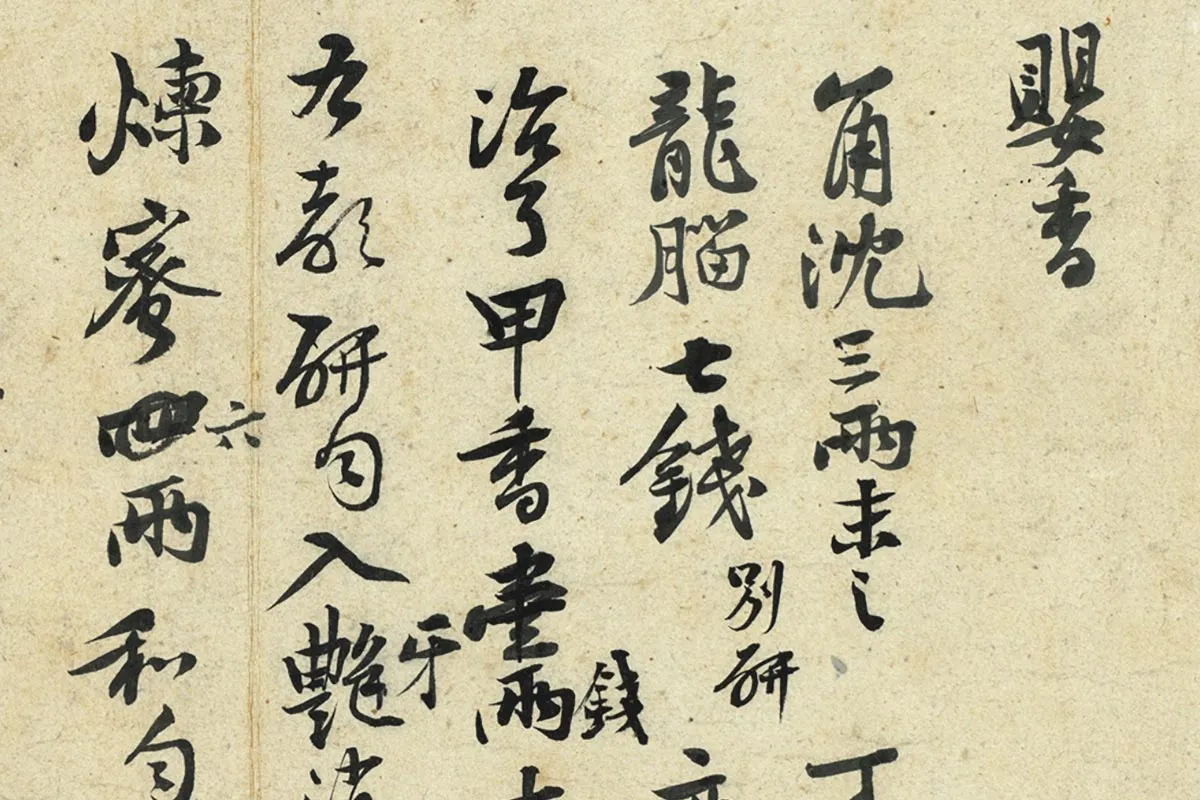 嬰香
角沈三兩末之 丁
龍腦七錢別研
治了甲香壹兩錢
右都研勻入艷牙
煉蜜六兩和勻